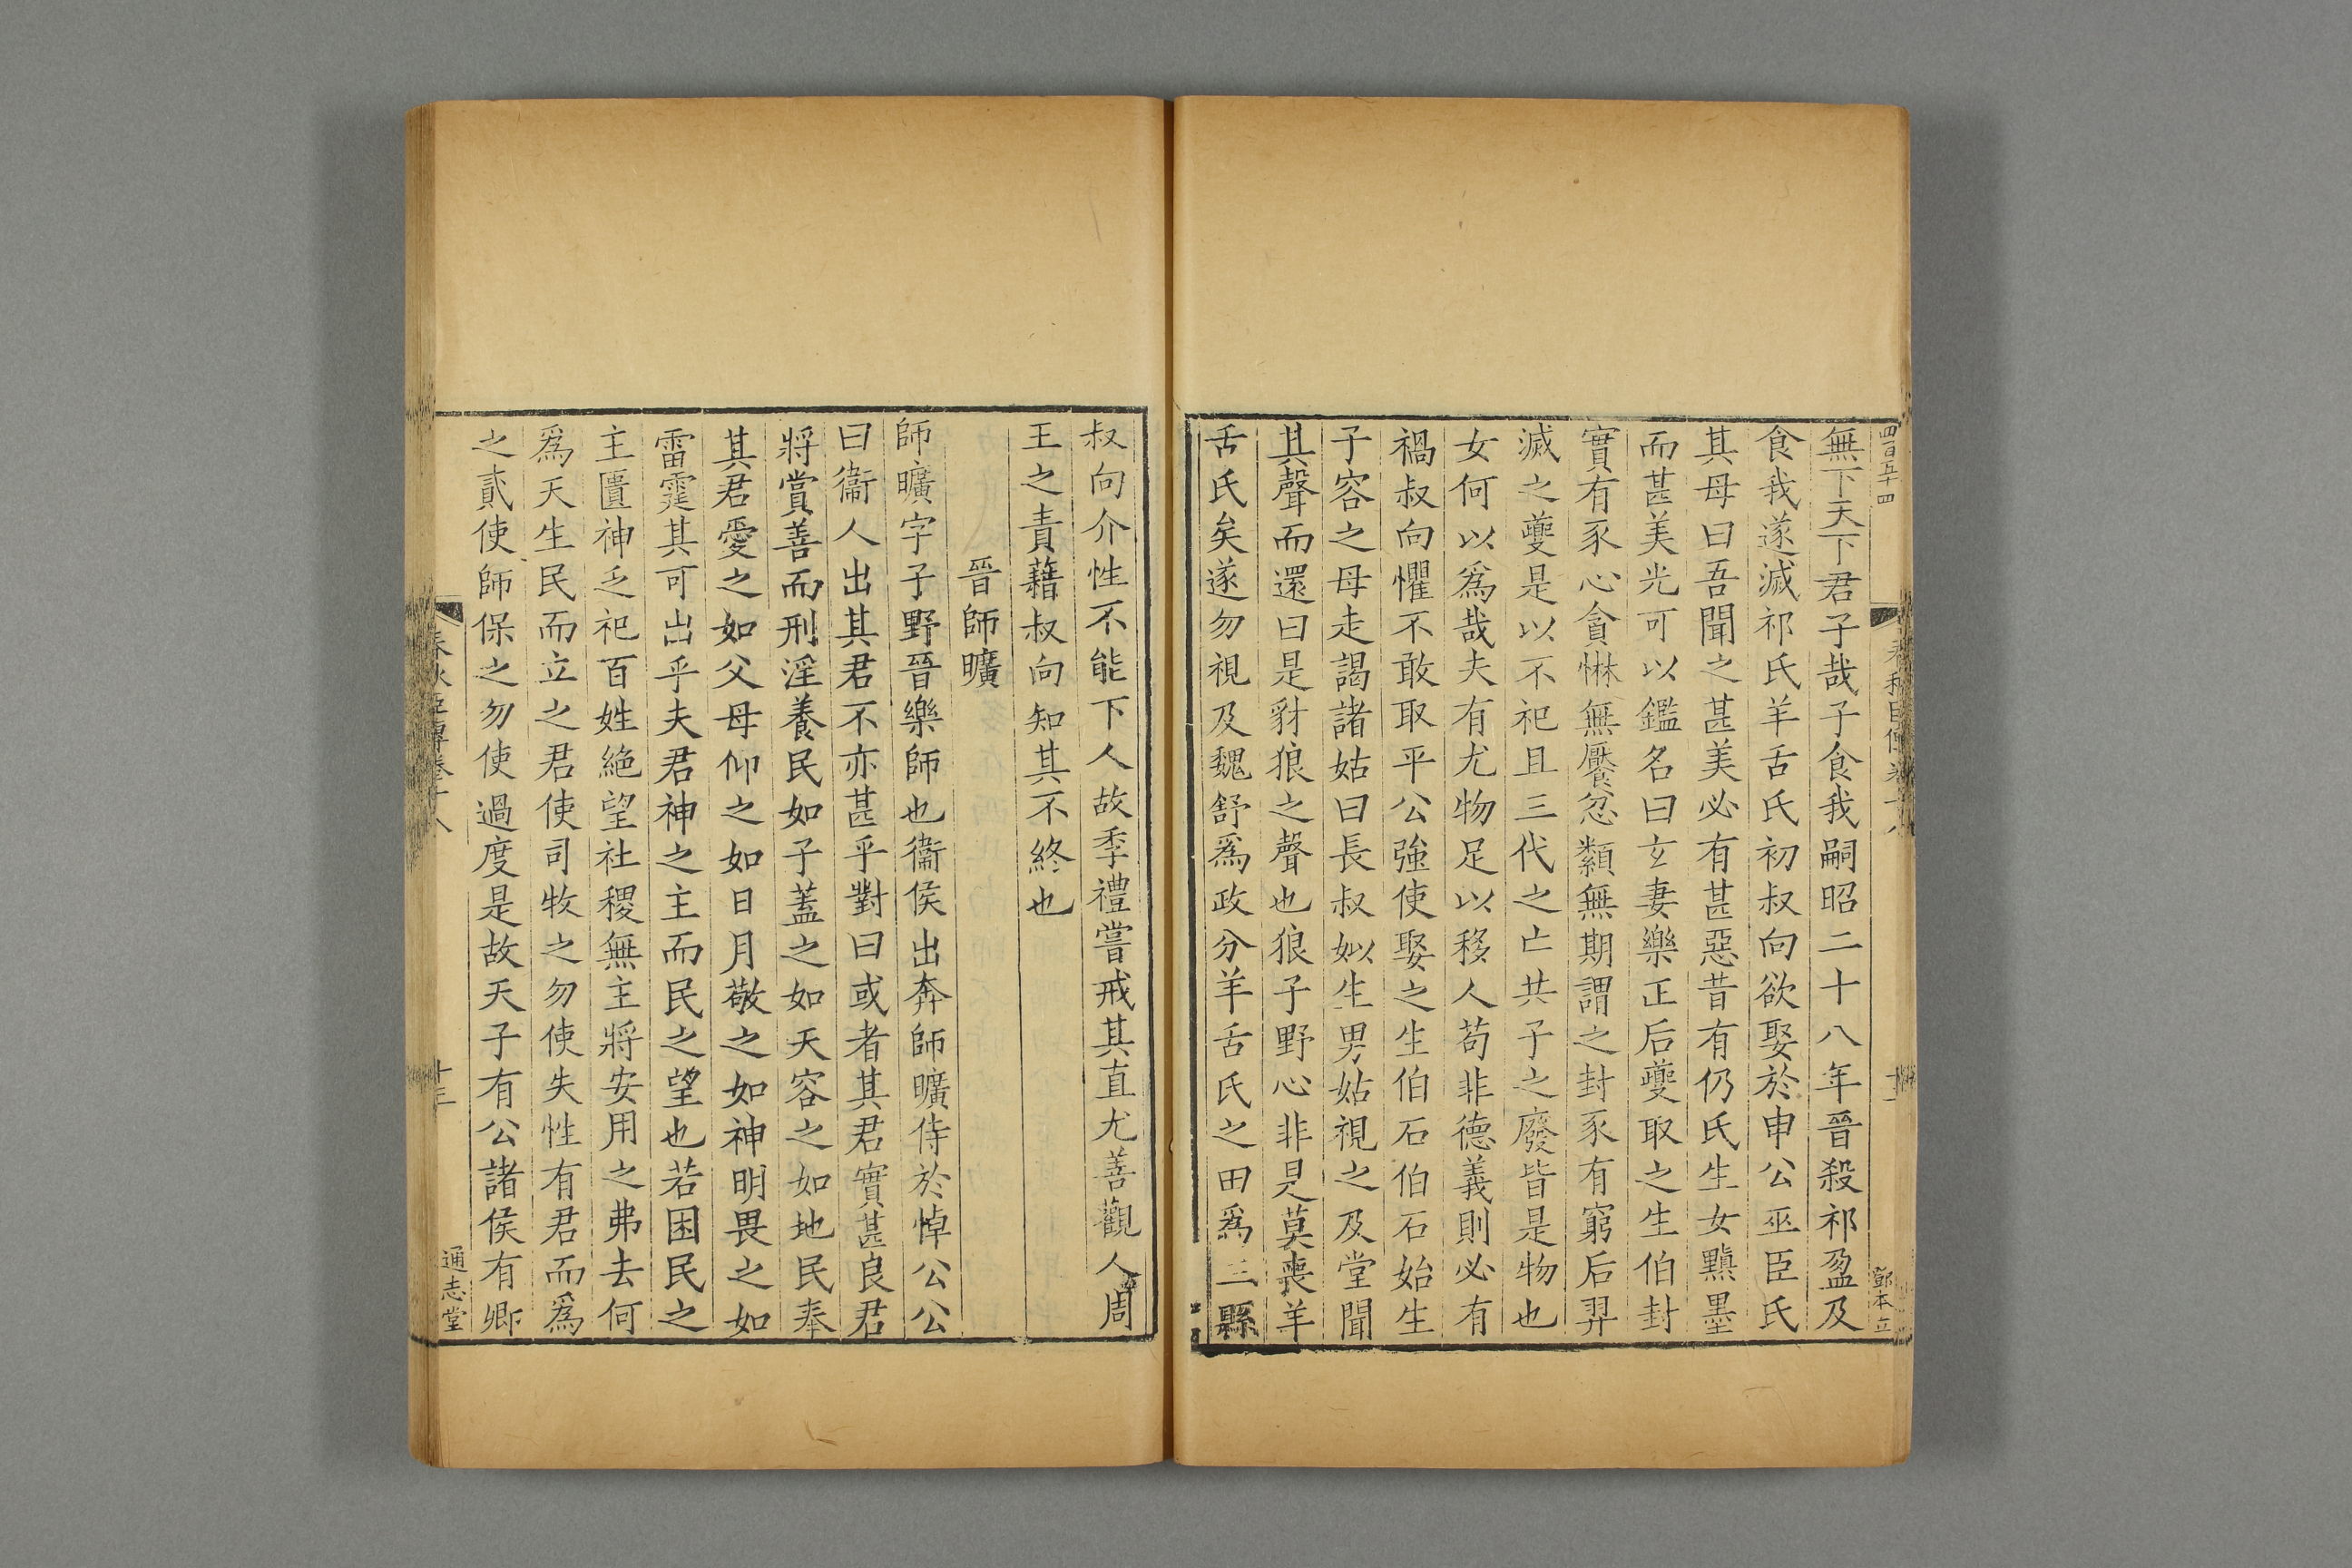 四百五十四
鄧本立
無下天下君子哉子食我嗣昭二十八年晉殺祁盈及
食我遂滅祁氏羊舌氏初叔向欲娶於申公巫臣氏
其母曰吾聞之甚美必有甚惡昔有仍氏生女黰墨
而甚美光可以鑑名曰玄妻樂正后夔取之生伯封
實有豕心貪惏無饜忿纇無期謂之封豕有窮后羿
滅之夔是以不祀且三代之亡共子之廢皆是物也
女何以爲哉夫有尤物足以移人苟非德義則必有
禍叔向懼不敢取平公強使娶之生伯石伯石始生
子容之母走謁諸姑曰長叔姒生男姑視之及堂聞
其聲而還曰是豺狼之聲也狼子野心非是莫喪羊
舌氏矣遂勿視及魏舒爲政分羊舌氏之田爲三縣
叔向介性不能下人故季禮嘗戒其直尤善觀人周
王之責藉叔向知其不終也
晉師曠
師曠字子野晉樂師也衞侯出奔師曠侍於悼公公
曰衞人出其君不亦甚乎對曰或者其君實甚良君
將賞善而刑淫養民如子蓋之如天容之如地民奉
其君愛之如父母仰之如日月敬之如神明畏之如
雷霆其可出乎夫君神之主而民之望也若困民之
主匱神乏祀百姓絶望社稷無主將安用之弗去何
爲天生民而立之君使司牧之勿使失性有君而爲
之貳使師保之勿使過度是故天子有公諸侯有卿
春秋臣傳卷十八
十三
通志堂